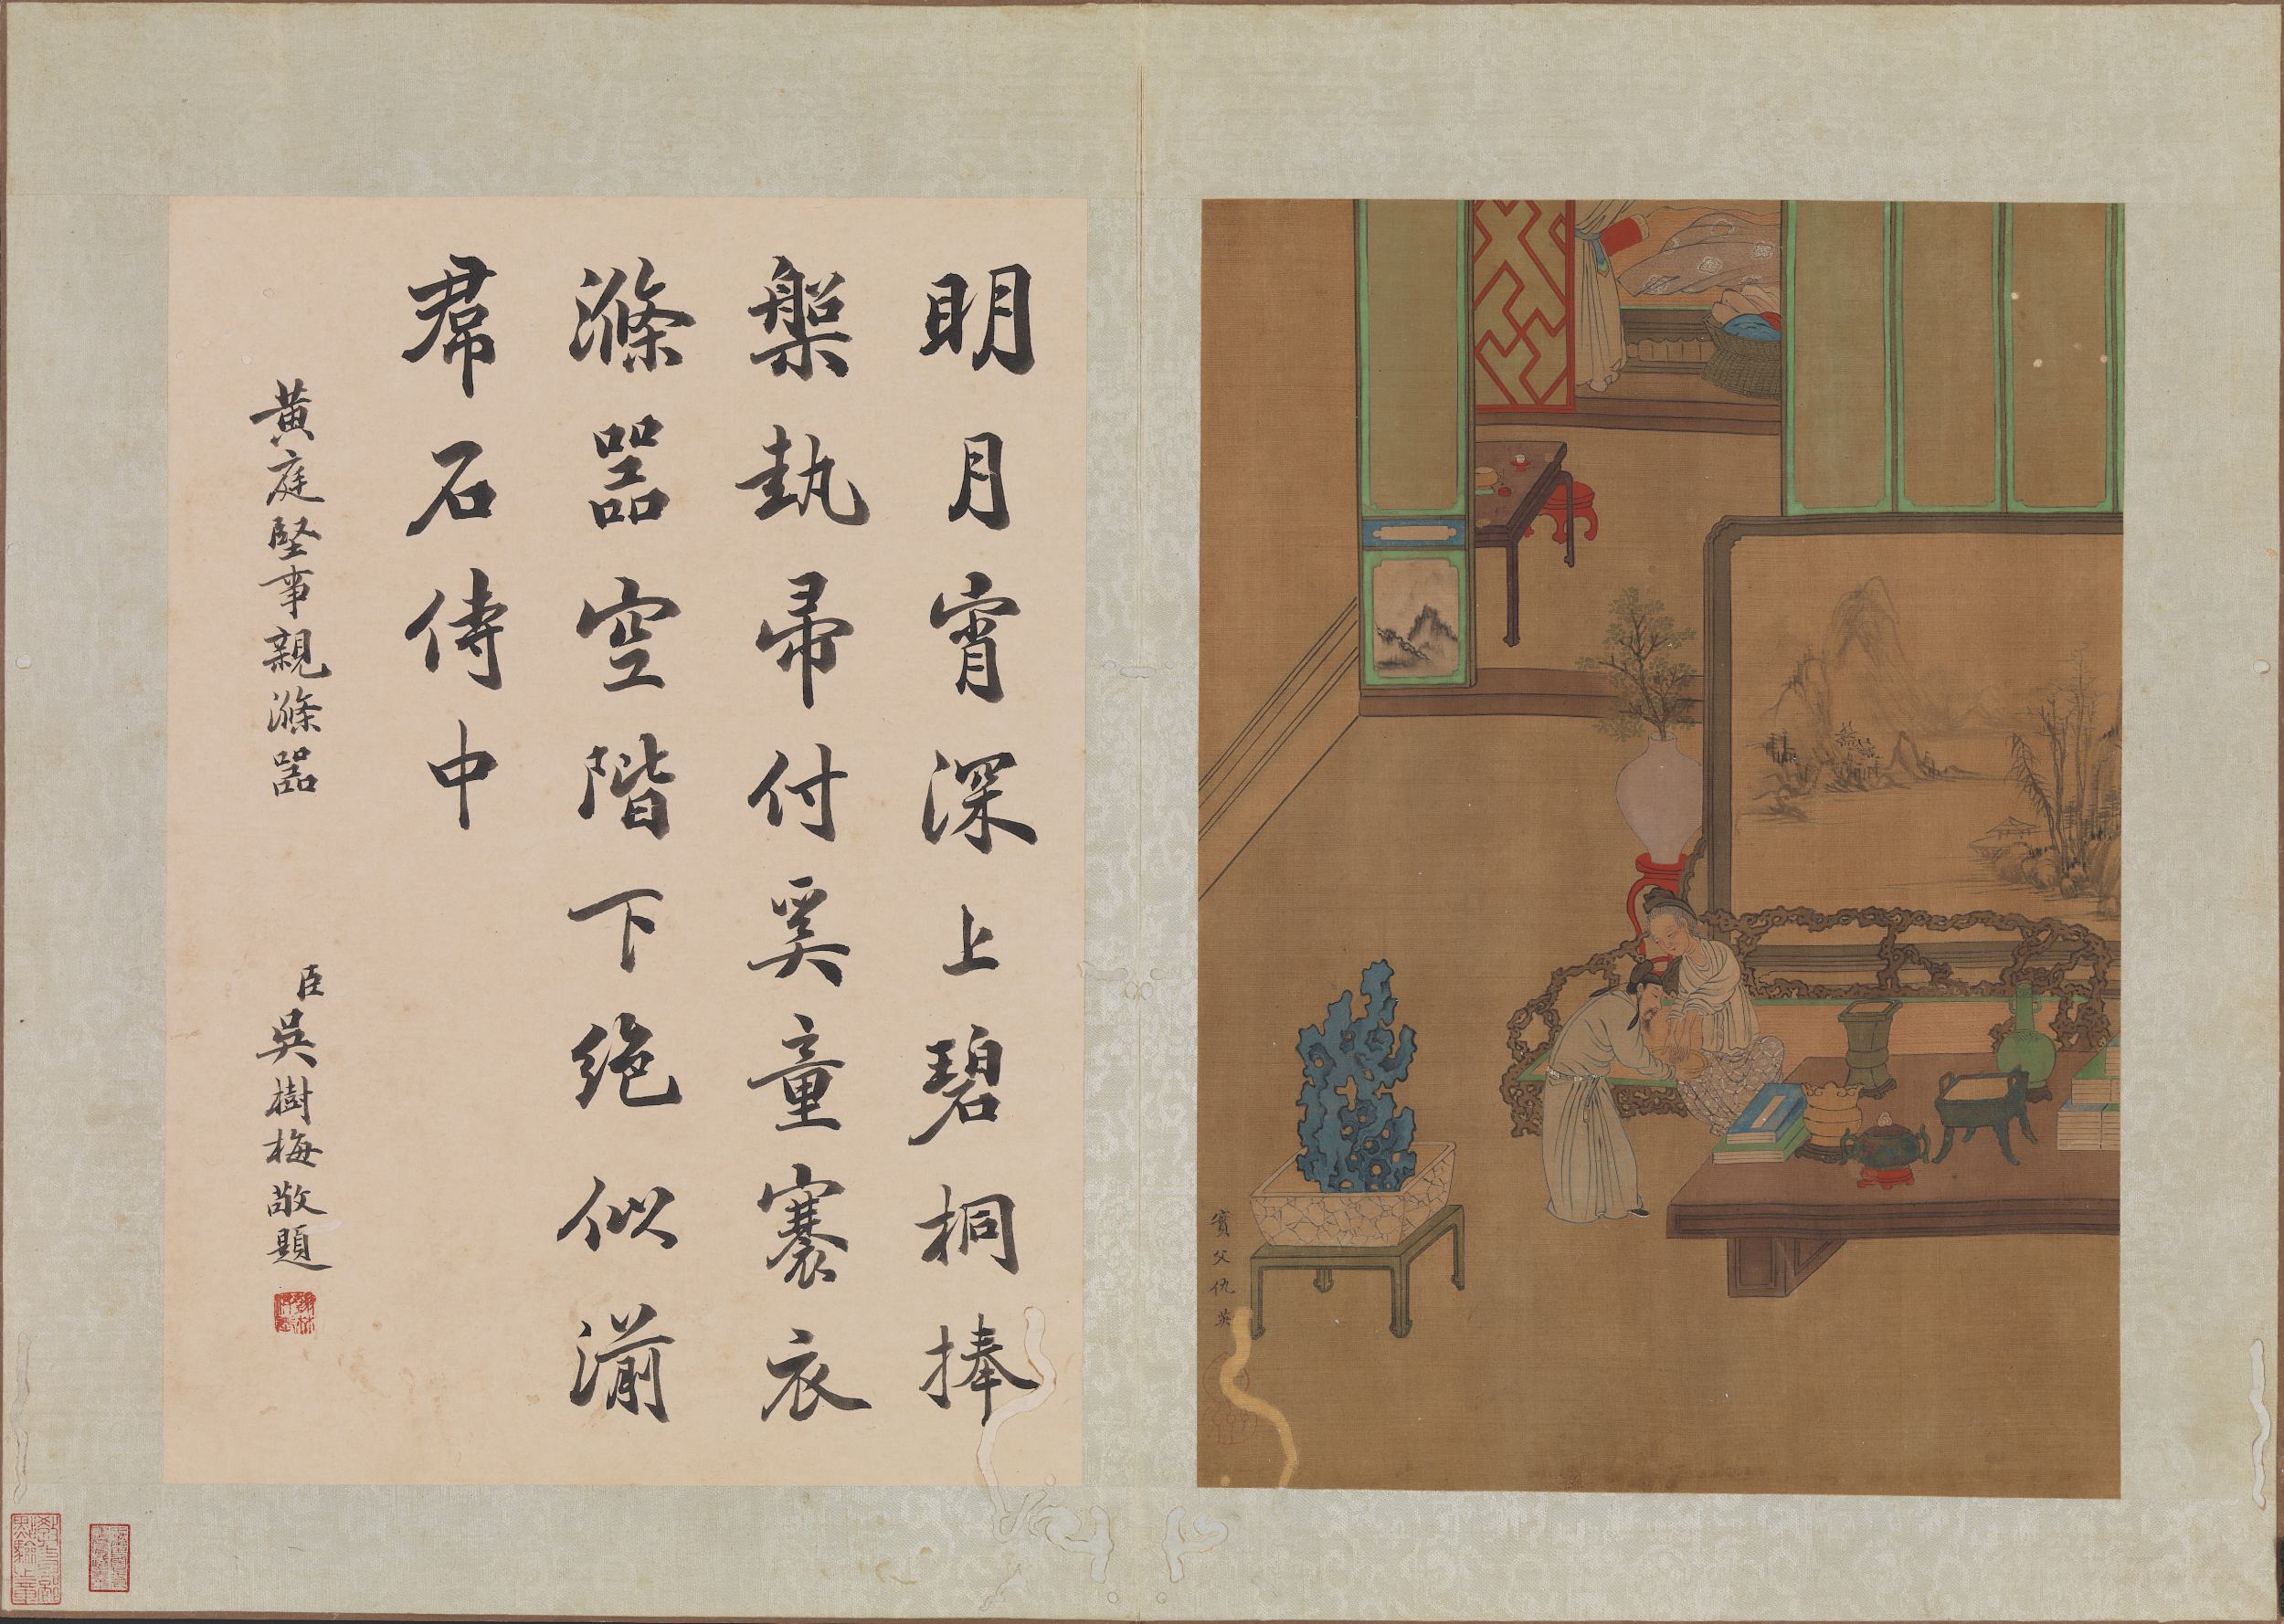 明月宵深上碧桐捧
槃執帚付奚童褰衣
滌器空階下絶似湔
帬石侍中
黃庭堅事親滌器
臣吳樹梅敬題
實父仇英